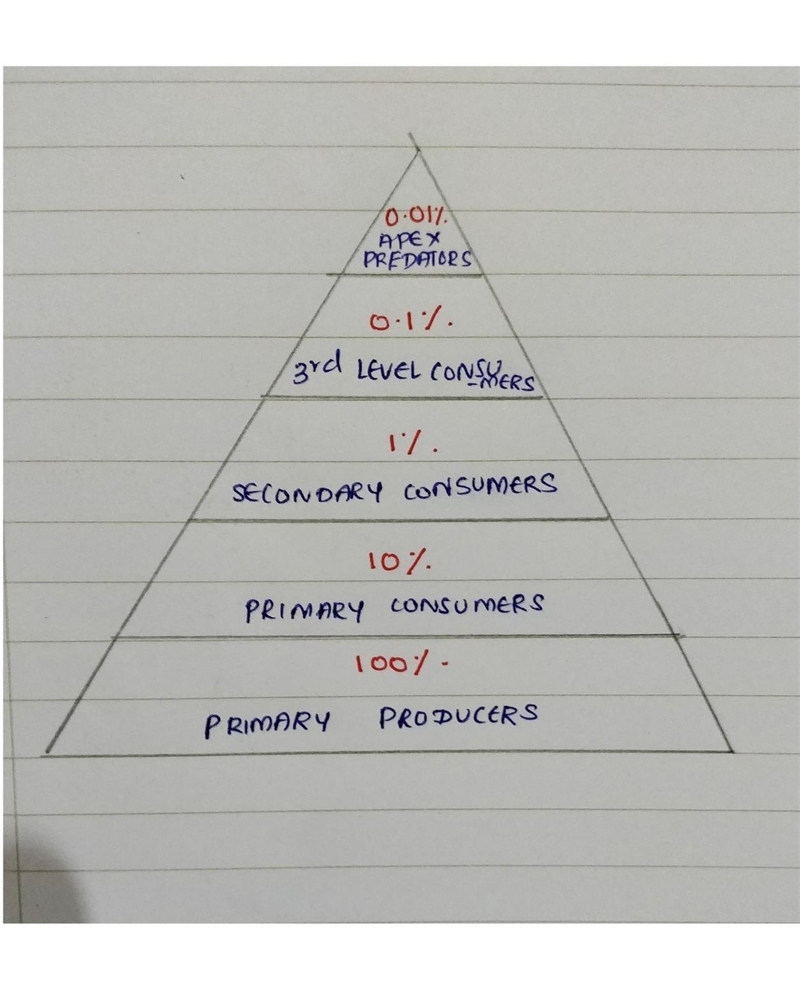 0.01%.
APEX
PREDATORS
0.1%.
3rd LEVEL CONSU
-MERS
1%.
SECONDARY CONSUMERS
10%.
PRIMARY CONSUMERS
100%.
PRIMARY PRODUCERS